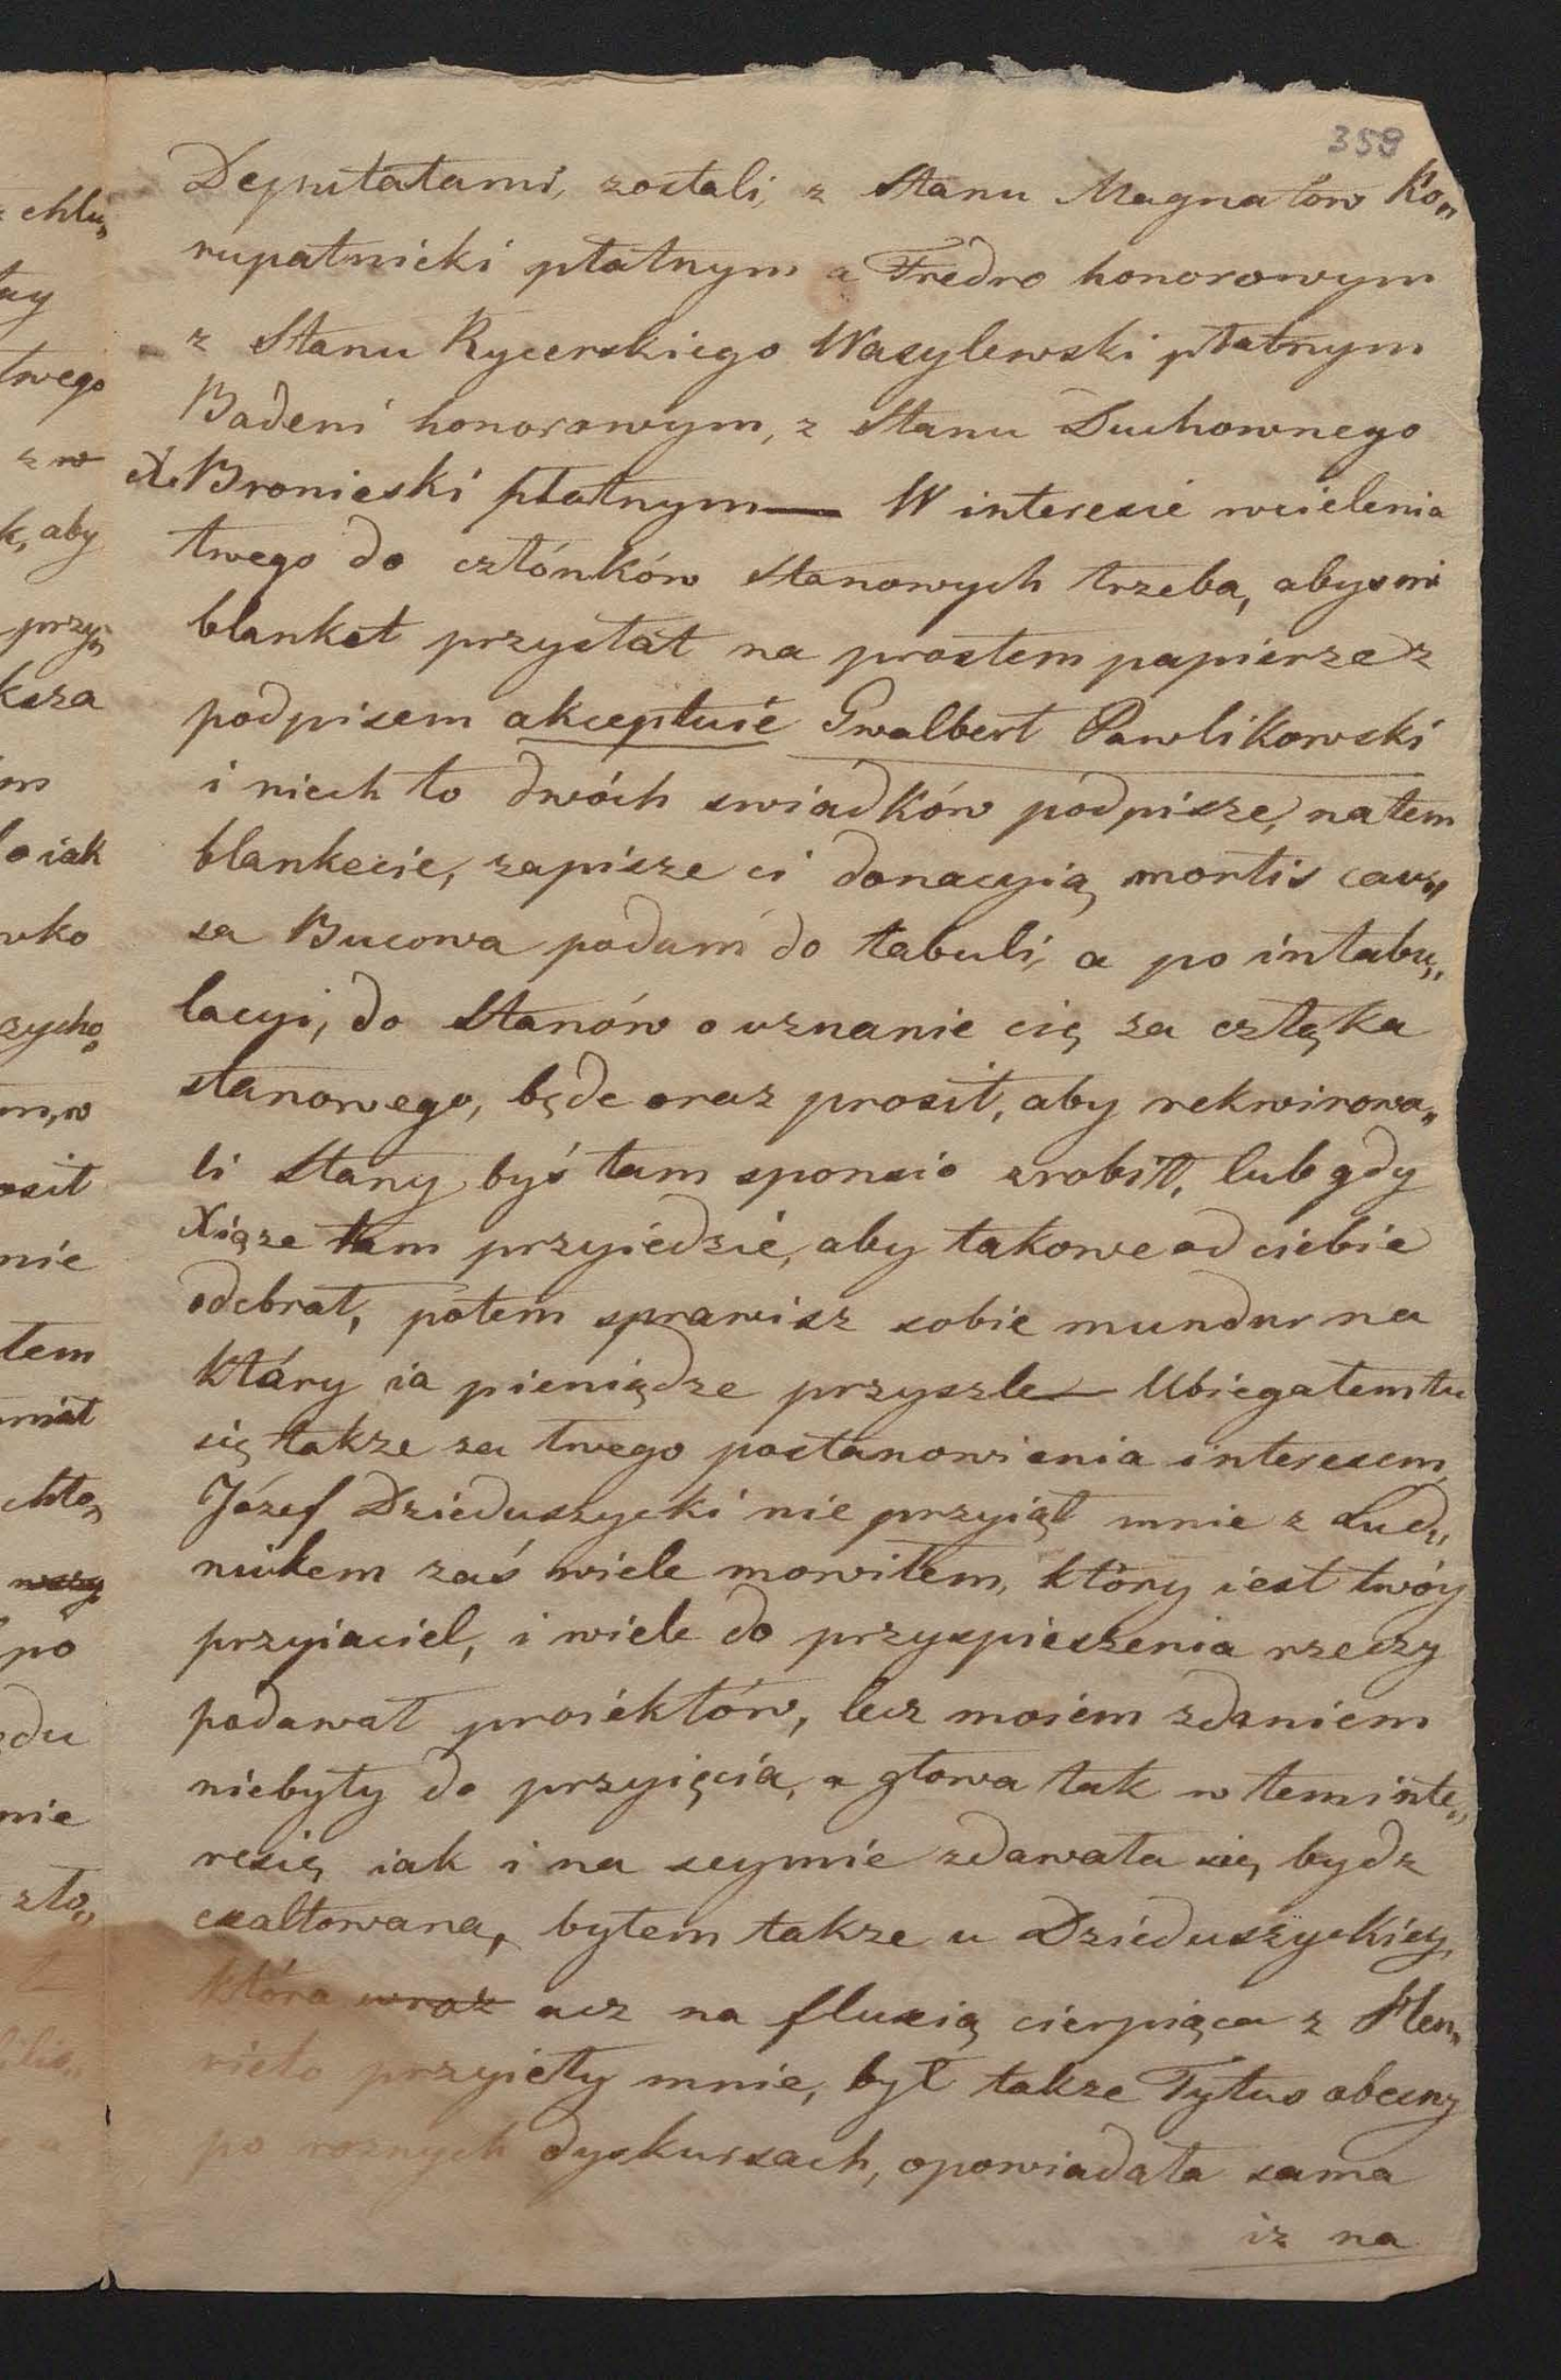 359
Deputatami, zostali, z Stanu Magnatów Ko„
rupatnicki płatnym a Fredro honorowym
z Stanu Rycerskiego Wasylewski płatnym
Badeni honorowym, z Stanu Duchownego
X. Bronieski płatnym — W interesie wcielenia
twego do człónków Stanowych trzeba, abys mi
blanket przysłał na prostem papierze z
podpisem akceptuie Gwalbert Pawlikowski
i niech to dwóch swiadków podpisze, na tem
blankecie, zapisze ci donacyią mortis cau„
sa Bucowa podam do tabuli, a po intabu„
lacyi, do Stanów o uznanie cię za człąka
stanowego, będe oraz prosił, aby rekwirowa„
li Stany byś tam sponsio zrobił, lub gdy
Xiąze tam przyiedzie, aby takowe od ciebie
odebrał, potem sprawisz sobie mundur na
który ia pieniądze przyszle — Ubiegałem tu
się takze za twego postanowienia interesem,
Józef Dzieduszycki nie przyiął mnie z Lud„
nikem zaś wiele mowiłem, który iest twóy
przyiaciel, i wiele do przyspieszenia rzeczy
podawał proiektów, lecz moiem zdaniem
niebyły do przyięcia, a głowa tak w tem inte„
resię iak i na seymie zdawała się bydz
exaltowana, byłem takze u Dzieduszyckiey,
która wraz acz na fluxią cierpiąca z Hen„
rieto przyieły mnie, był takze Tytus obecny
po roznych dyskursach, opowiadała sama
iz na
chlu„
twego
z w
k, aby
przy„
ksza
o iak
zycho„
m, w
osił
nie
tem
miał
chło„
po
du
nie
zło„